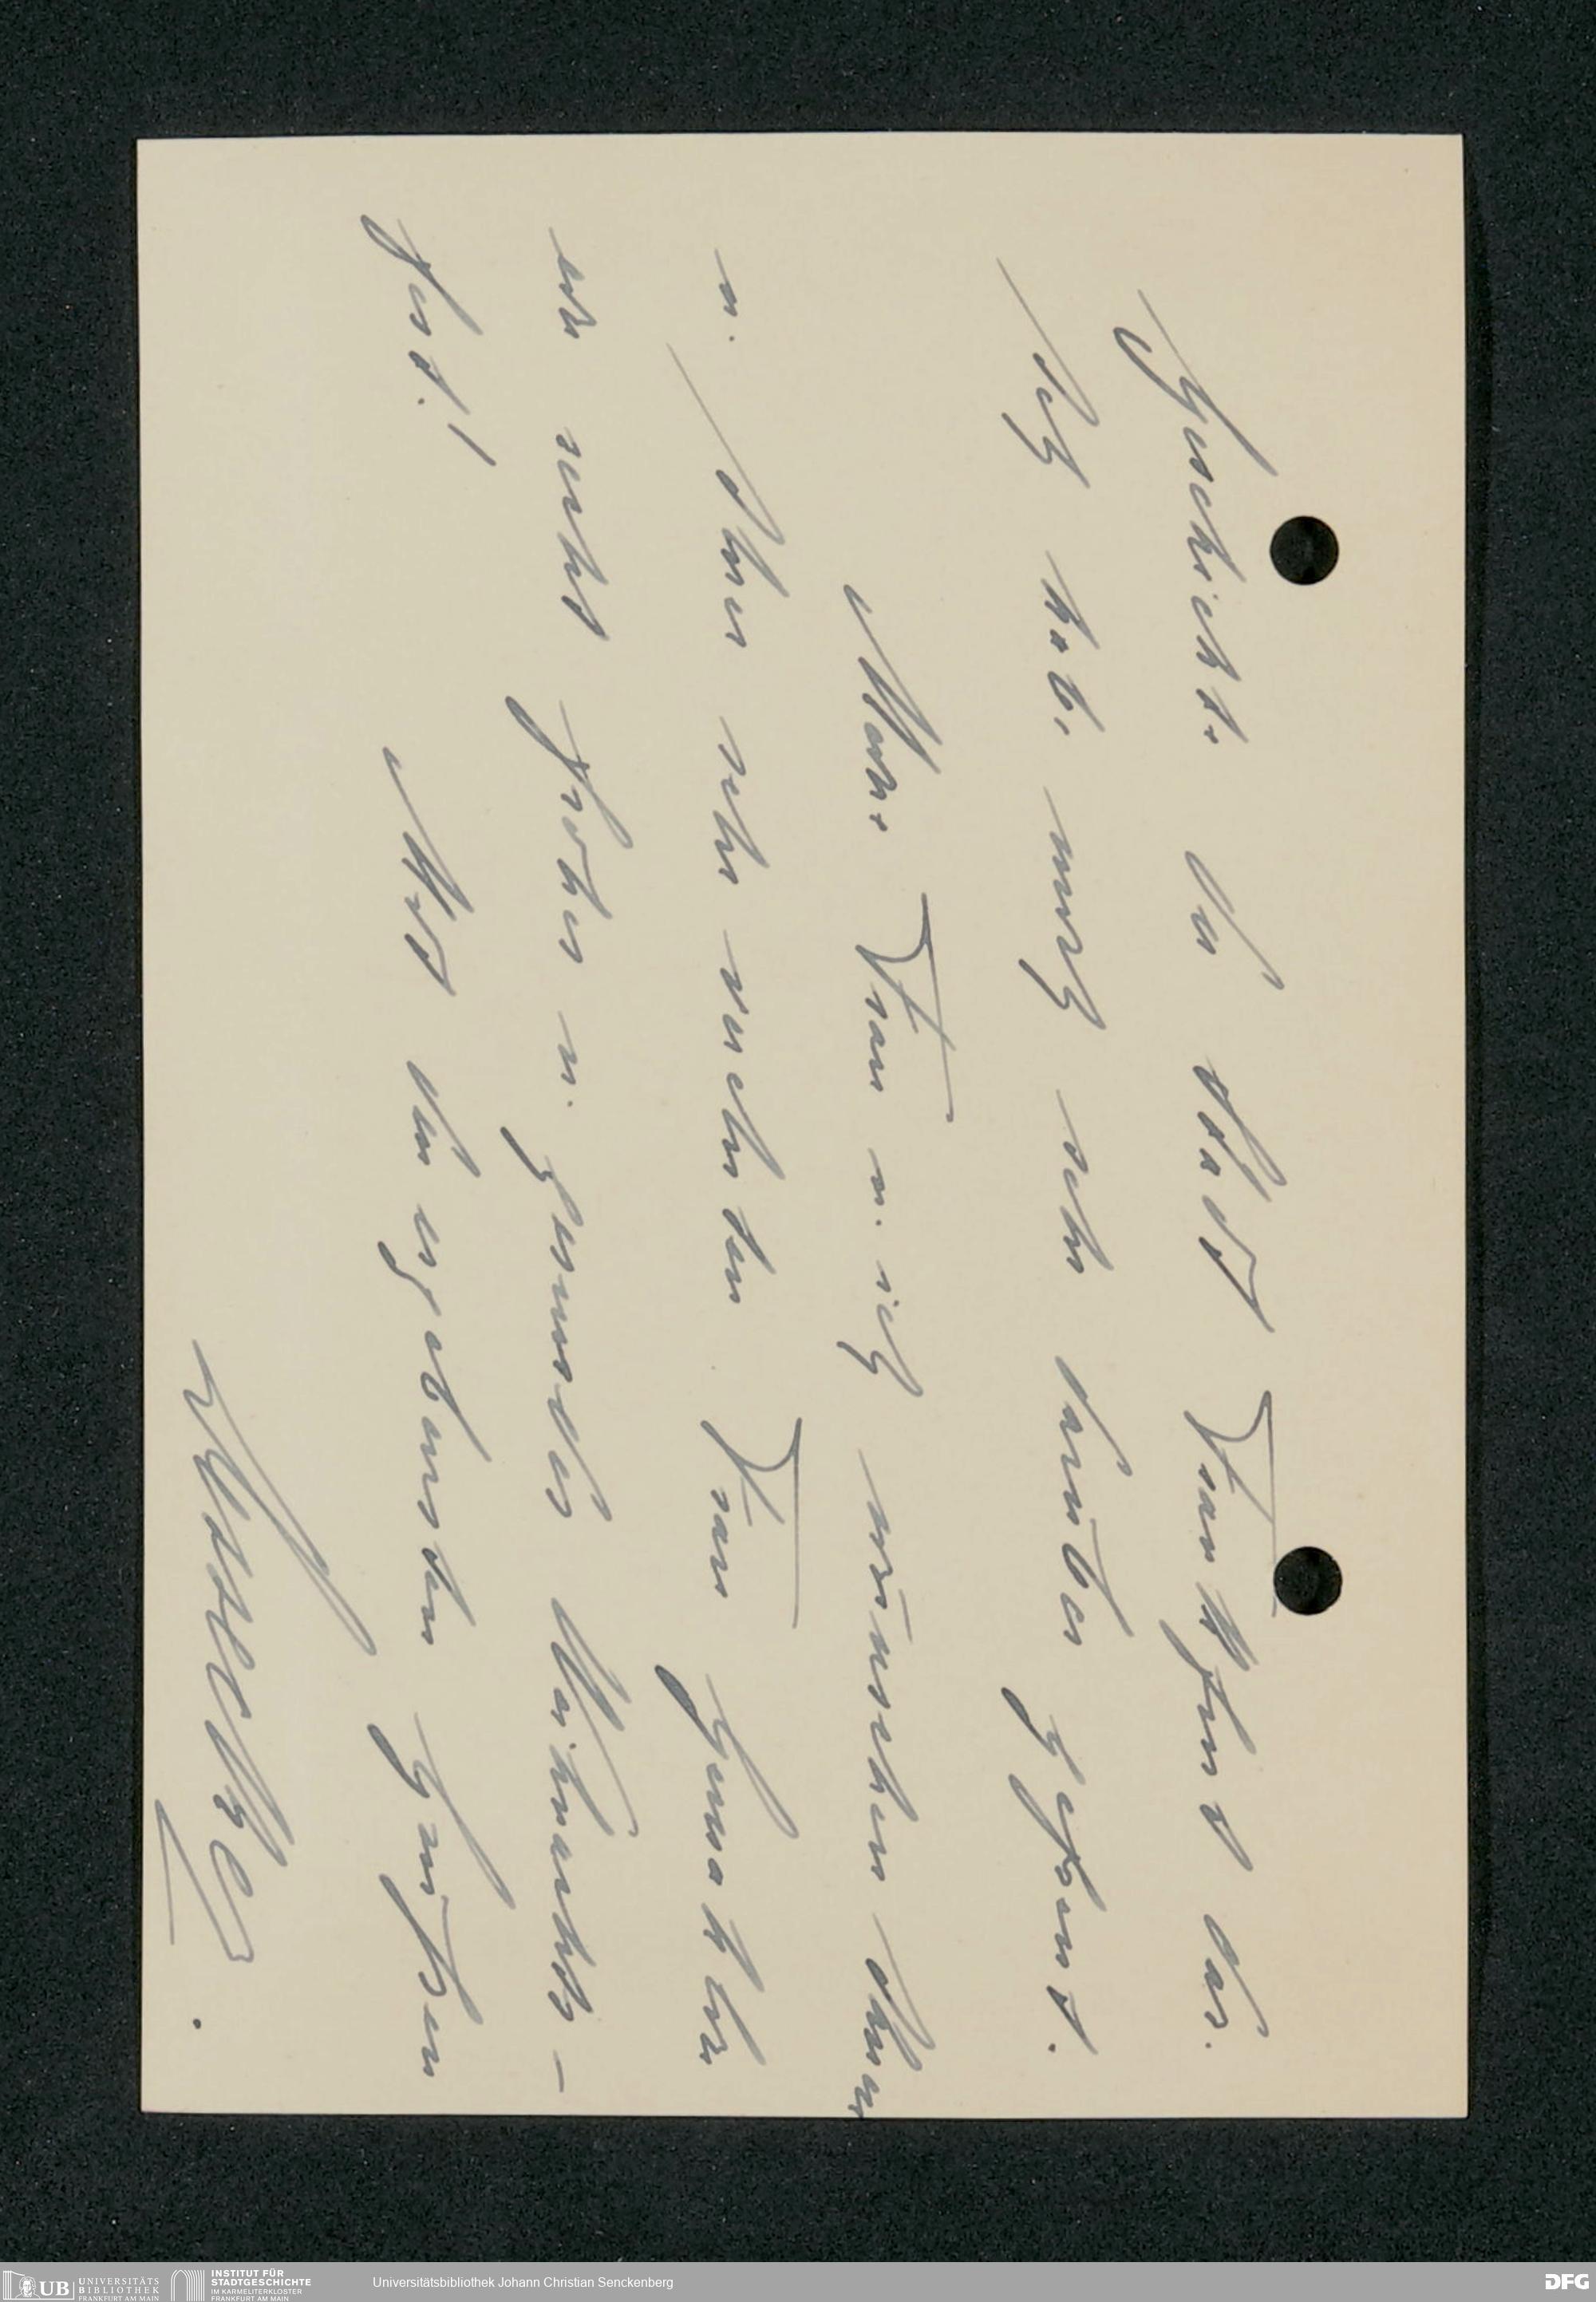 Geschichte der Stadt Frankfurt dar.
Ich hab mich sehr darüber gefreut.
Meine Frau u. ich wünschen Ihnen
u. Ihrer sehr verehrten Frau Gemahlin
ein recht frohes u. gesundes Weihnachts-
fest!
Mit den ergebensten Grüßen
UB UNIVERSITÄTS
BIBLIOTHEK
FRANKFURT AM MAIN
INSTITUT FÜR
STADTGESCHICHTE
IM KARMELITERKLOSTER
FRANKFURT AM MAIN
Universitätsbibliothek Johann Christian Senckenberg
DFG